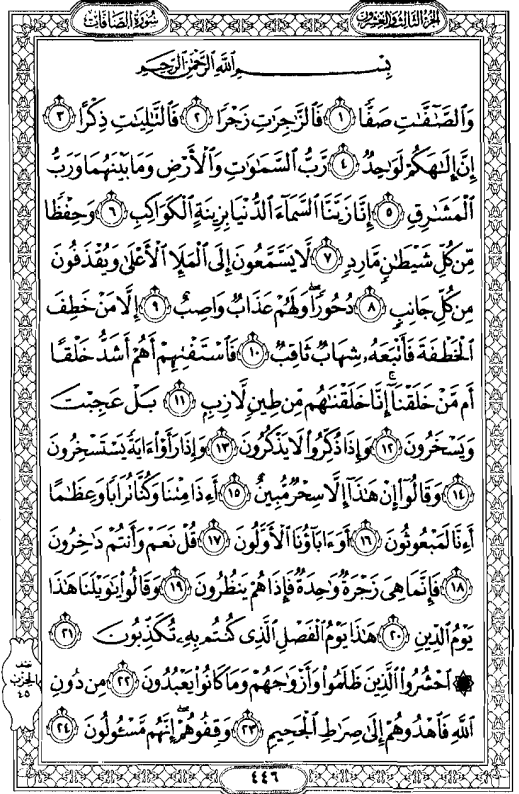 سُورَةُ الصَّافَّاتِ
الجُزْءُ الثَّالِثُ وَالعِشْرُونَ
بِسْمِ ٱللَّهِ ٱلرَّحْمَٰنِ ٱلرَّحِيمِ
وَٱلصَّٰٓفَّٰتِ صَفًّا ١ فَٱلزَّٰجِرَٰتِ زَجْرًا ٢ فَٱلتَّٰلِيَٰتِ ذِكْرًا ٣
إِنَّ إِلَٰهَكُمْ لَوَٰحِدٌ ٤ رَّبُّ ٱلسَّمَٰوَٰتِ وَٱلْأَرْضِ وَمَا بَيْنَهُمَا وَرَبُّ
ٱلْمَشَٰرِقِ ٥ إِنَّا زَيَّنَّا ٱلسَّمَآءَ ٱلدُّنْيَا بِزِينَةٍ ٱلْكَوَاكِبِ ٦ وَحِفْظًا
مِّن كُلِّ شَيْطَٰنٍ مَّارِدٍ ٧ لَّا يَسَّمَّعُونَ إِلَى ٱلْمَلَإِ ٱلْأَعْلَىٰ وَيُقْذَفُونَ
مِن كُلِّ جَانِبٍ ٨ دُحُورًا ۖ وَلَهُمْ عَذَابٌ وَاصِبٌ ٩ إِلَّا مَنْ خَطِفَ
ٱلْخَطْفَةَ فَأَتْبَعَهُۥ شِهَابٌ ثَاقِبٌ ١٠ فَٱسْتَفْتِهِمْ أَهُمْ أَشَدُّ خَلْقًا
أَم مَّنْ خَلَقْنَآ ۚ إِنَّا خَلَقْنَٰهُم مِّن طِينٍ لَّازِبٍۭ ١١ بَلْ عَجِبْتَ
وَيَسْخَرُونَ ١٢ وَإِذَا ذُكِّرُوا۟ لَا يَذْكُرُونَ ١٣ وَإِذَا رَأَوْا۟ ءَايَةً يَسْتَسْخِرُونَ
١٤ وَقَالُوٓا۟ إِنْ هَٰذَآ إِلَّا سِحْرٌ مُّبِينٌ ١٥ أَءِذَا مِتْنَا وَكُنَّا تُرَابًا وَعِظَٰمًا
أَءِنَّا لَمَبْعُوثُونَ ١٦ أَوَءَابَآؤُنَا ٱلْأَوَّلُونَ ١٧ قُلْ نَعَمْ وَأَنتُمْ دَٰخِرُونَ
١٨ فَإِنَّمَا هِىَ زَجْرَةٌ وَٰحِدَةٌ فَإِذَا هُمْ يَنظُرُونَ ١٩ وَقَالُوا۟ يَٰوَيْلَنَا هَٰذَا
يَوْمُ ٱلدِّينِ ٢٠ هَٰذَا يَوْمُ ٱلْفَصْلِ ٱلَّذِى كُنتُم بِهِۦ تُكَذِّبُونَ ٢١
۞ ٱحْشُرُوا۟ ٱلَّذِينَ ظَلَمُوا۟ وَأَزْوَٰجَهُمْ وَمَا كَانُوا۟ يَعْبُدُونَ ٢٢ مِن دُونِ
ٱللَّهِ فَٱهْدُوهُمْ إِلَىٰ صِرَٰطِ ٱلْجَحِيمِ ٢٣ وَقِفُوهُمْ ۖ إِنَّهُم مَّسْـُٔولُونَ ٢٤
نصف
الحزب
٤٥
٤٤٦